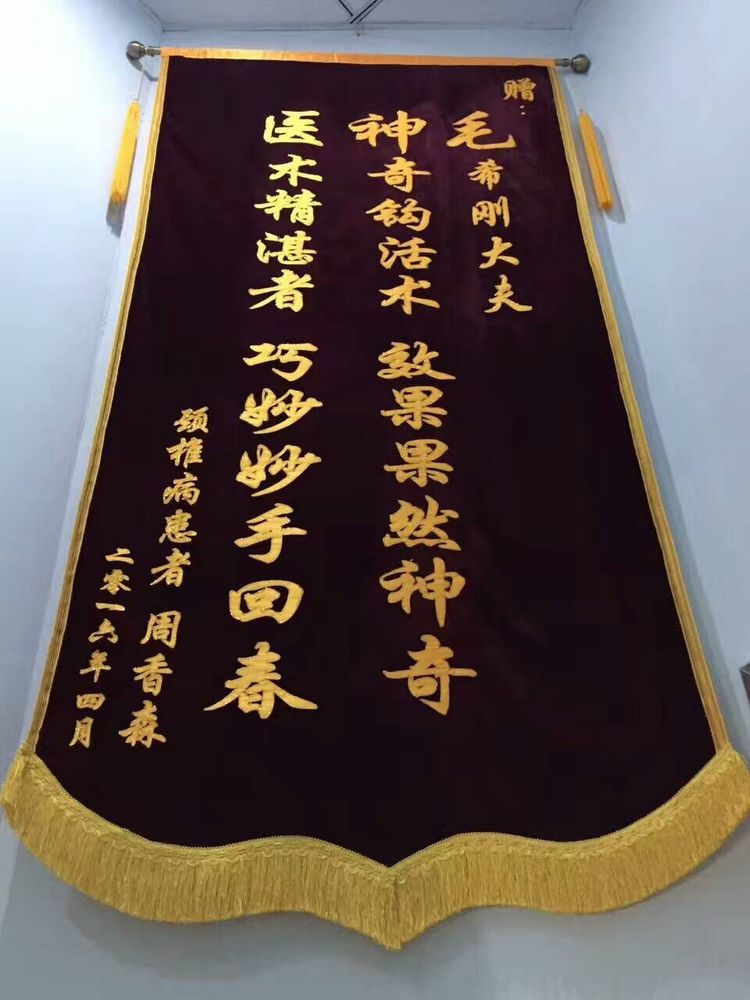 赠：
毛希刚大夫
神奇钩活术 效果果然神奇
医术精湛者 巧妙妙手回春
颈椎病患者 周香森
二零一六年四月